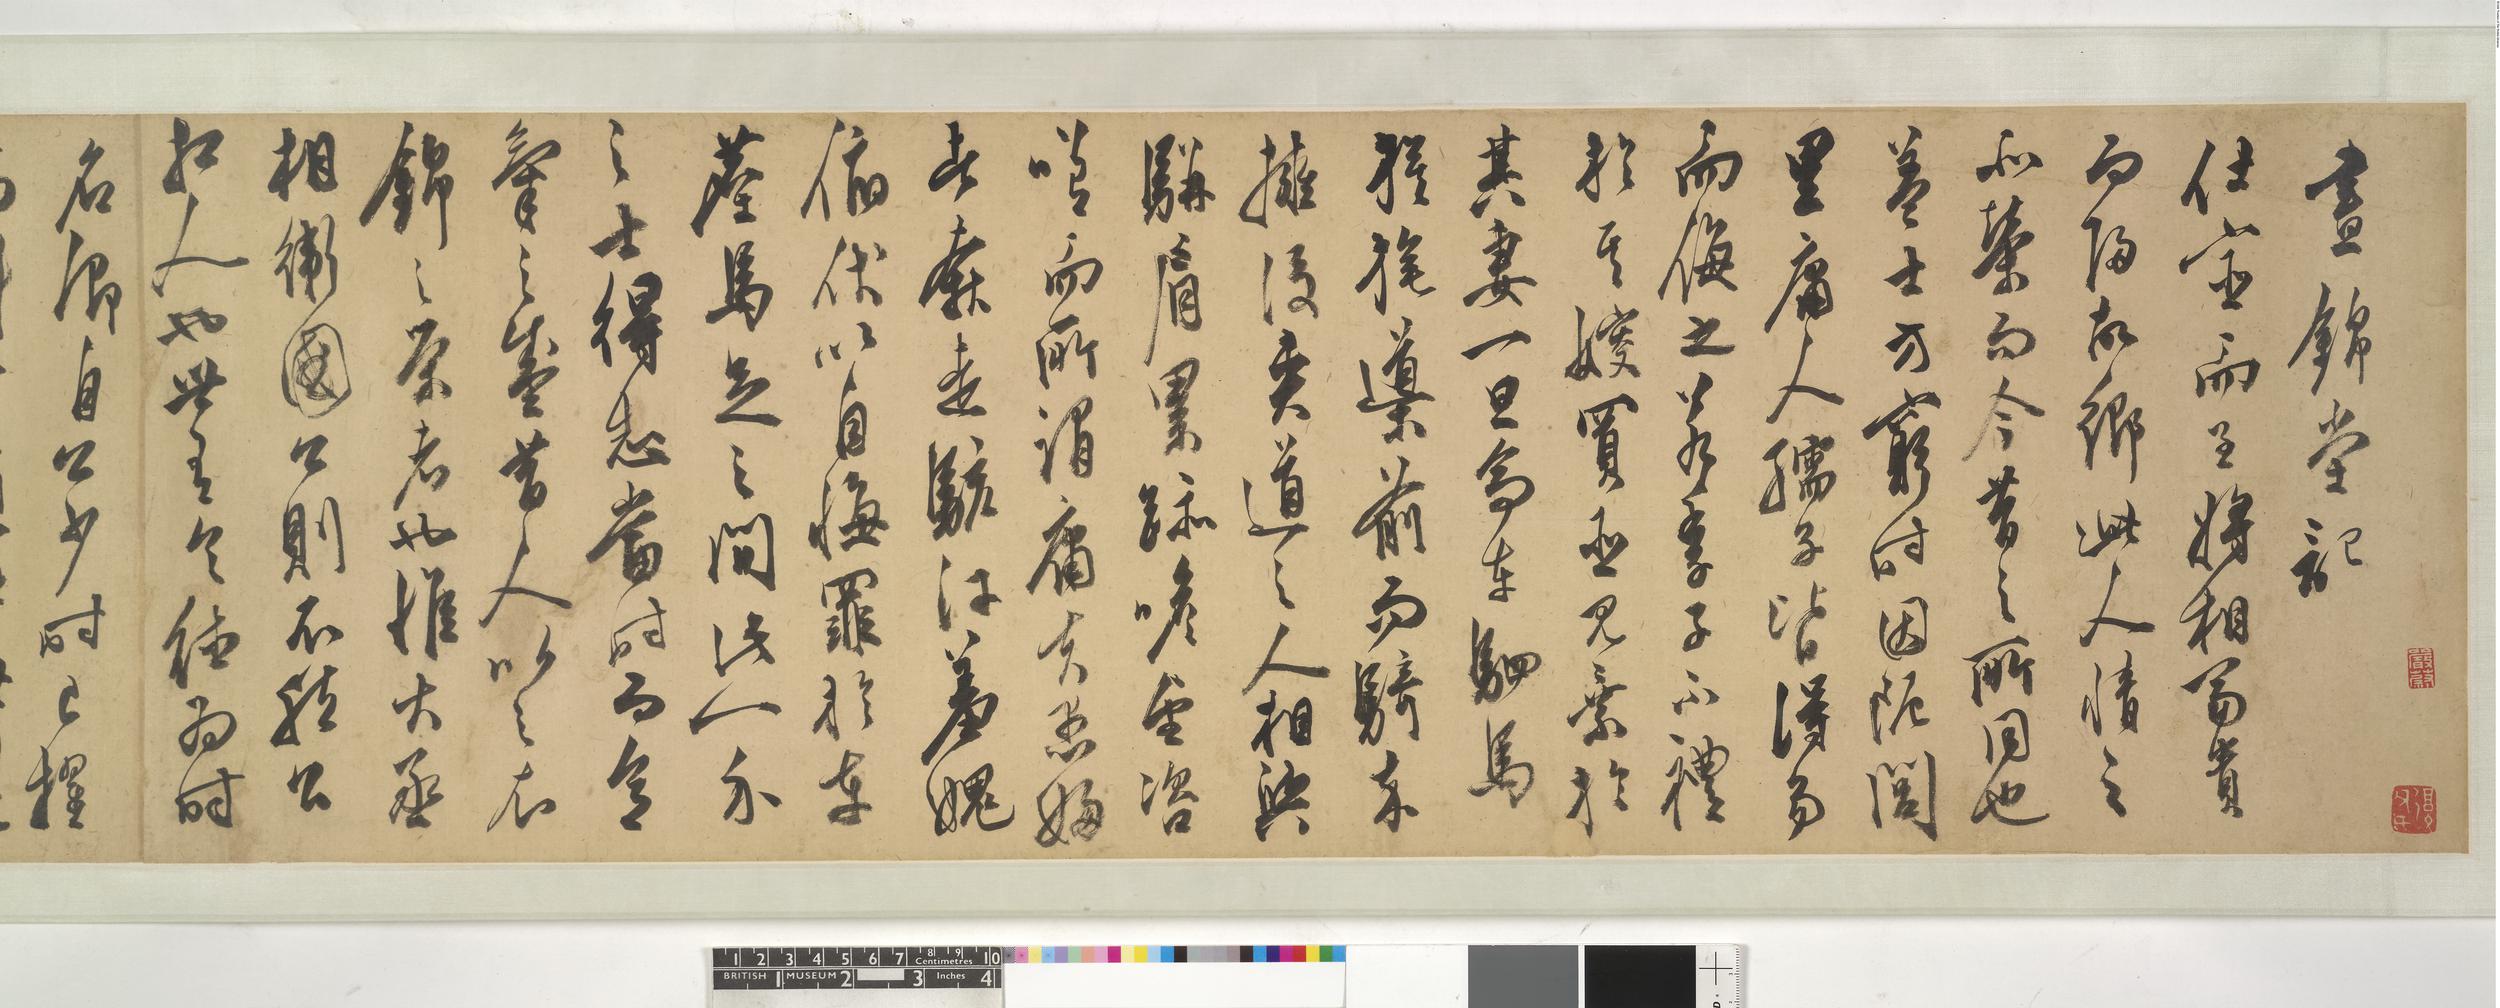 晝錦堂記
仕宦而至將相富貴
而歸故鄉此人情之
所榮而今昔之所同也
蓋士方窮時困阨閭
里庸人孺子皆得易
而侮之若季子不禮
於其嫂買臣見棄於
其妻一旦高車駟馬
旗旄導前而騎卒
擁後夾道之人相與
駢肩累跡瞻望咨
嗟而所謂庸夫愚婦
者奔走駭汗羞愧
俯伏以自悔罪於車
塵馬足之間此一介
之士得志當時而意
氣之盛昔人比之衣
錦之榮者也惟大丞
相衛國公則不然公
相人也世有令德為時
名卿自公少時已擢
嚴蔚
1 2 3 4 5 6 7 8 9 10
Centimetres
BRITISH MUSEUM
1 2 3 4
Inches